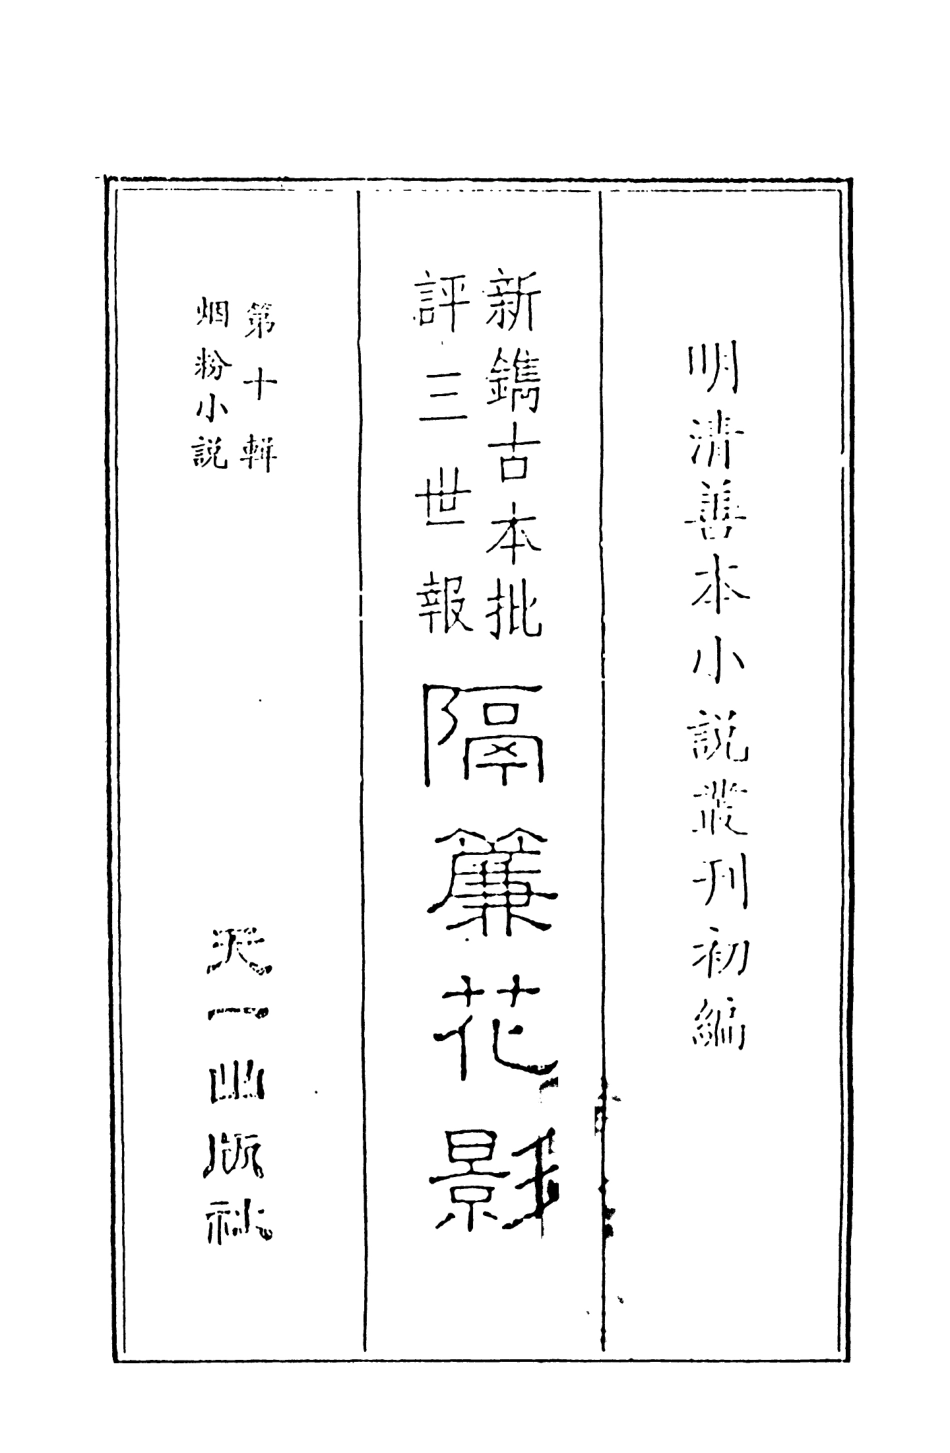 明清善本小説叢刊初編
新鐫古本批
評三世報
隔簾花影
第十輯
烟粉小説
天一出版社